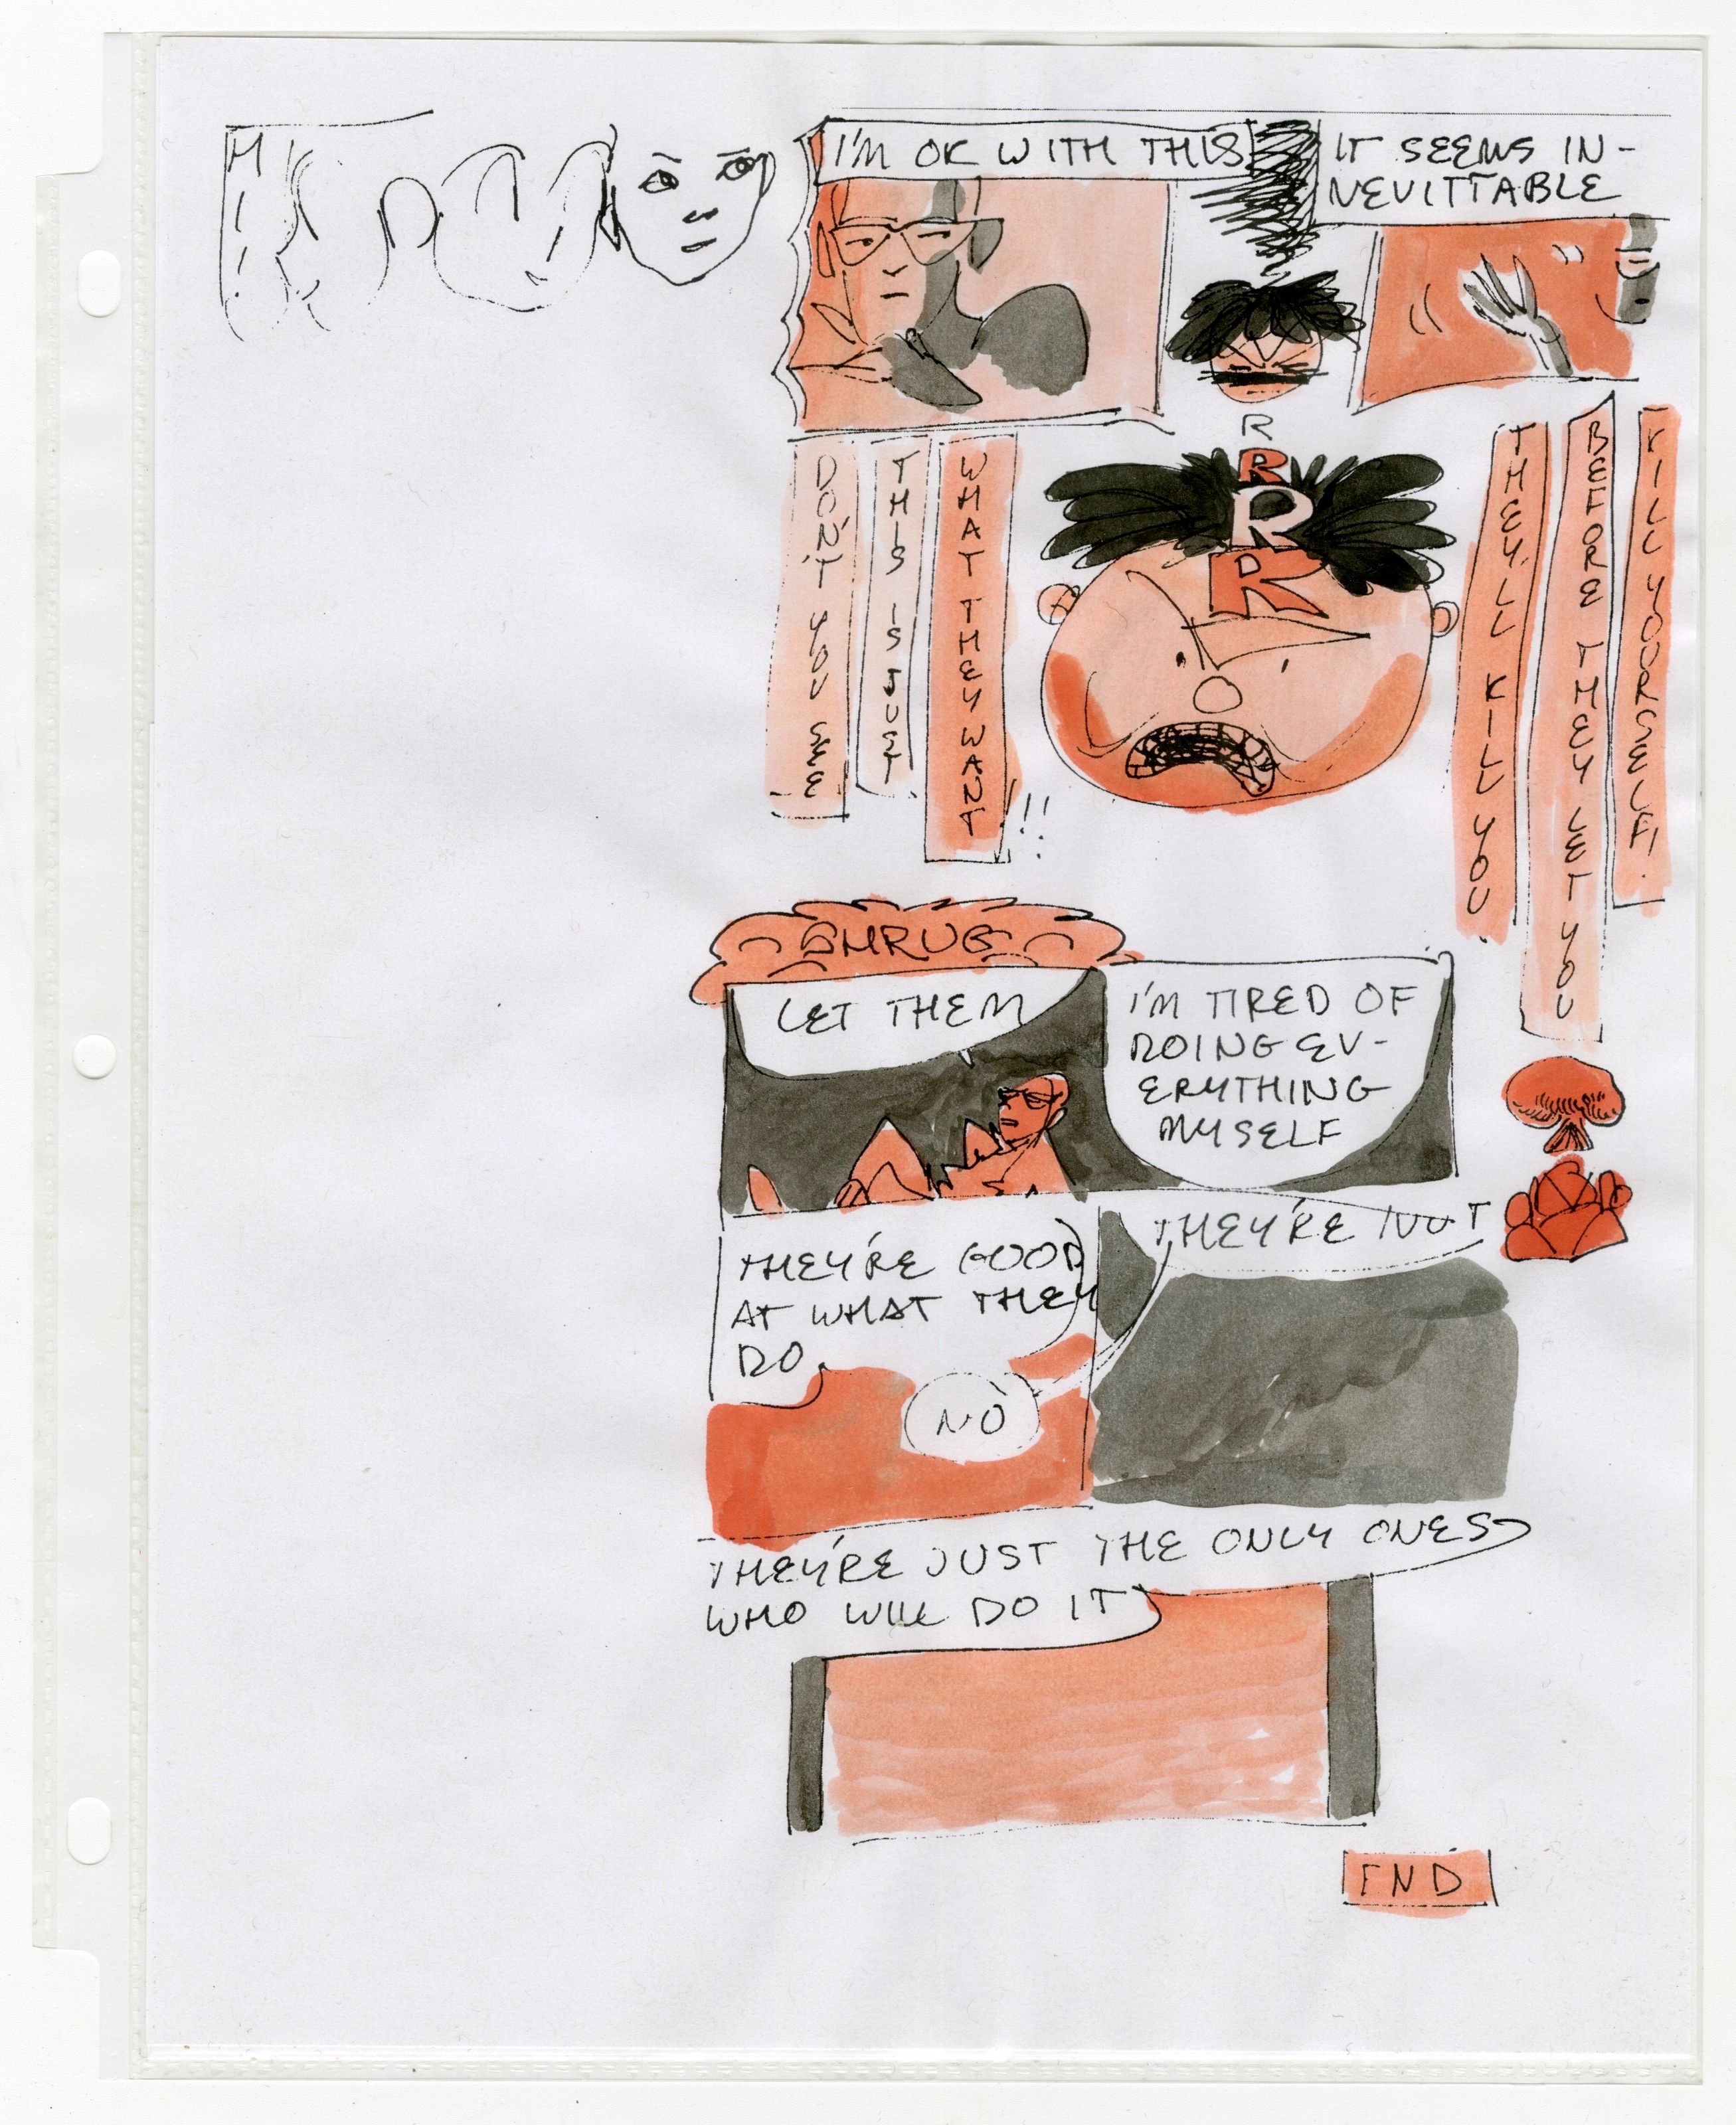 I'M OK WITH THIS
IT SEEMS IN-
NEVITTABLE
R
R
R
R
DON'T YOU SEE
THIS IS JUST
WHAT THEY WANT!!
THEY'LL KILL YOU.
BEFORE THEY LET YOU
KILL YOURSELF!
SHRUG
LET THEM
I'M TIRED OF
DOING EV-
ERYTHING
MYSELF
THEY'RE GOOD
AT WHAT THEY
DO
THEY'RE NOT
NO
THEY'RE JUST THE ONLY ONES
WHO WILL DO IT
END